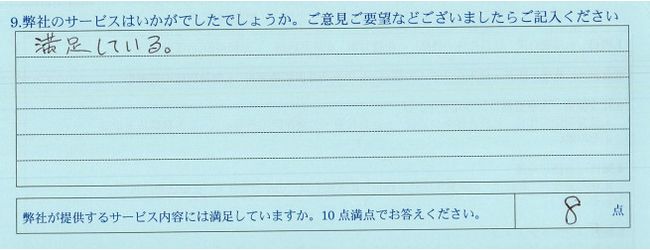 9.弊社のサービスはいかがでしたでしょうか。ご意見ご要望などございましたらご記入ください
満足している。
弊社が提供するサービス内容には満足していますか。10点満点でお答えください。 8 点